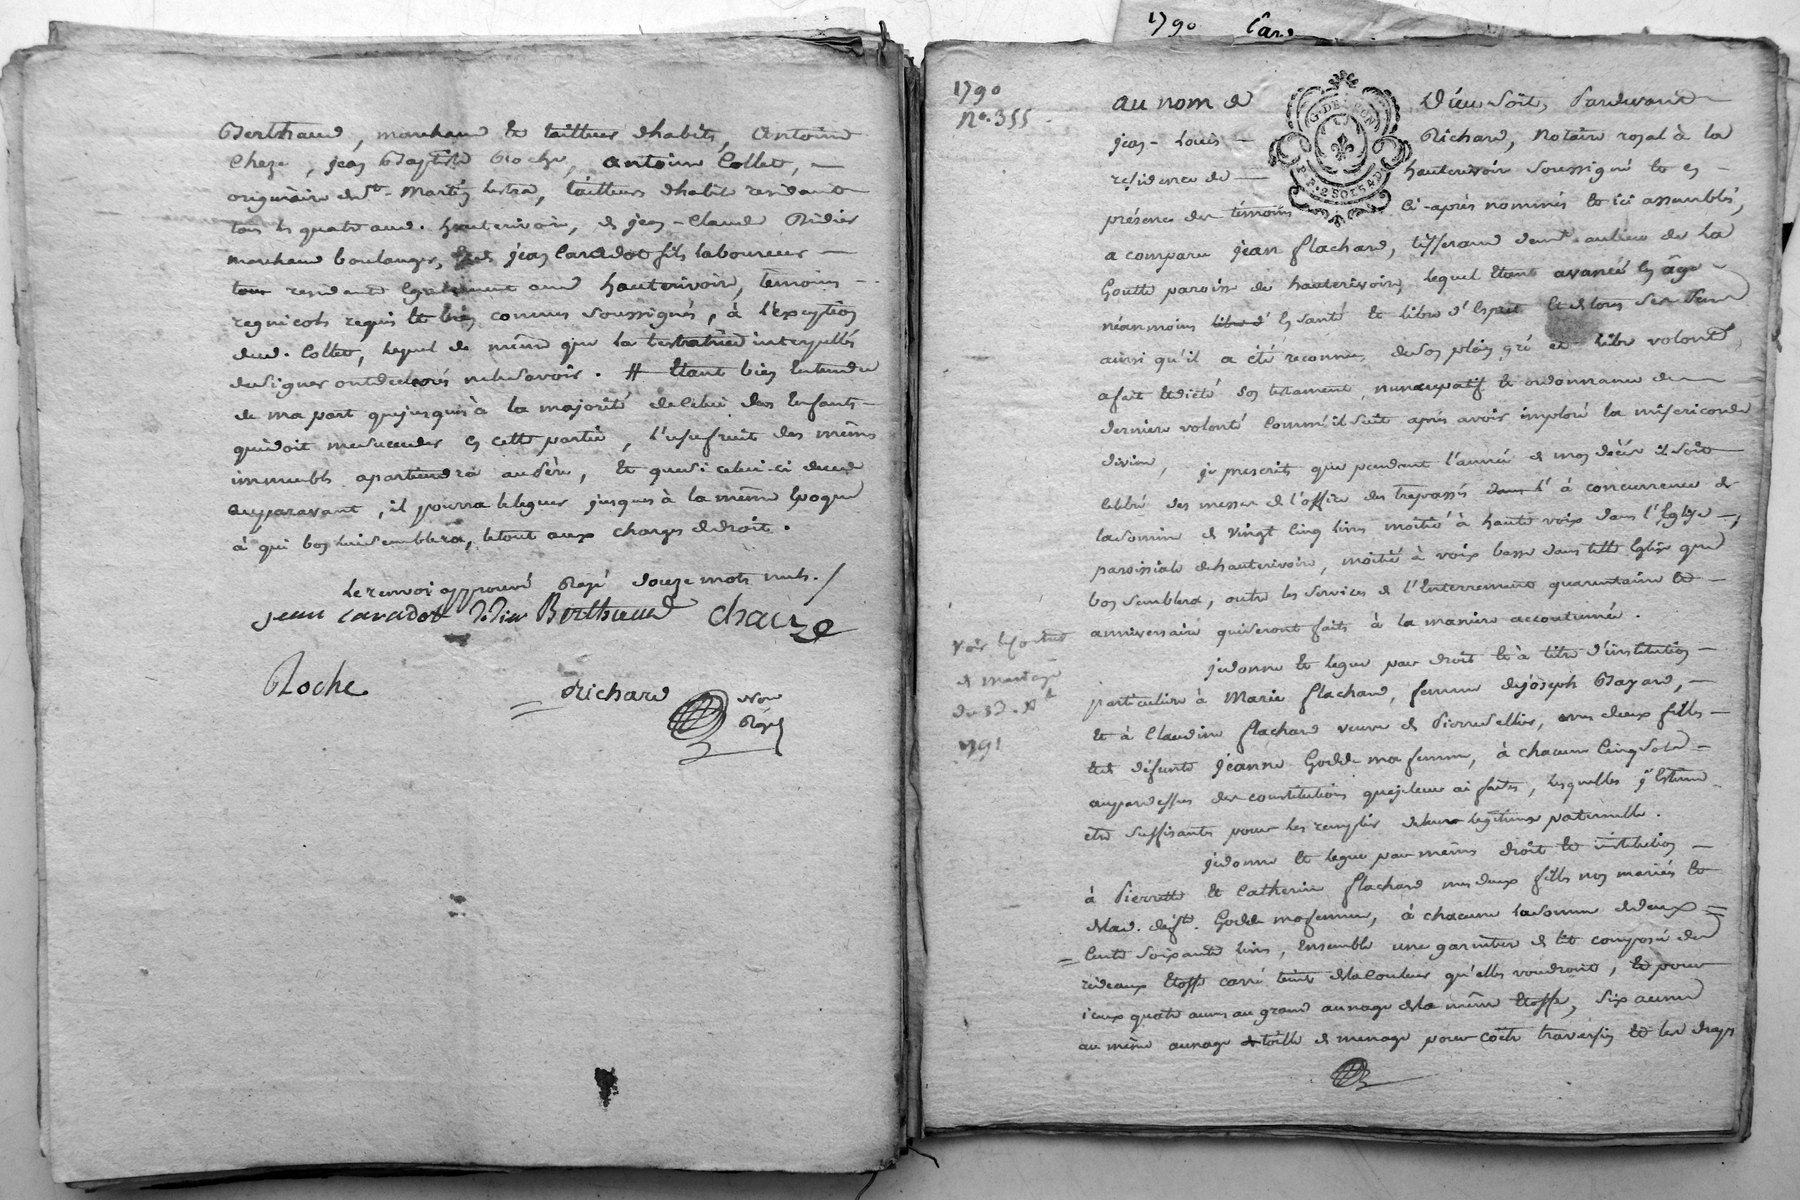 Berthaud, marchand et tailleur d'habits, Antoine
Cheze, jean Baptiste Roche, Antoine Collet,
originaire de St. Martin lestra, tailleurs d'habit residant
tous les quatre aud. hauterivoir, et jean-Claude Didier
marchand boulanger, et jean Caradot fils laboureur
tous residants également aud hauterivoir, temoins
regnicols requis et bien connus soussignés, à l'exception
dud. Collet, lequel de même que la testatrice interpellés
de signer ont declarés ne le savoir. # Etant bien Entendu
de ma part que jusques à la majorité de celui des Enfants
qui doit me succeder en cette partie, l'usufruit des mêmes
immeubls apartiendra au père, et que si celui-ci decede
auparavant, il pourra leleguer jusques à la même Epoque
à qui bon lui semblera, le tout aux charges de droit.
Le renvoi approuvé Rayé douze mots nuls. /
jean caradot Didier Berthaud chaize
Roche
Richard Nore
Royl
1790 Car
1790
No. 355
au nom de Dieu soit, Pardevant
jean-Louis Richard, Notaire royal à la
residence de hauterivoir soussigné et en
G. DE LYON
présence des témoins ci-après nommés et ici assemblés,
a comparu jean flachard, tisserand demt. au lieu de la
Goutte paroisse de hauterivoir, lequel Etant avancé en âge
néanmoins libre d' En santé et libre d'Esprit et de tous ses sens
ainsi qu'il a été reconnu, de son plein gré et libre volonté,
a fait et dicté son testament nuncupatif et ordonnance de
derniere volonté comm'il suit après avoir imploré la misericorde
divine, je prescrits que pendant l'année de mon décès il soit
celébré des messes de l'office des trepassés dans l' à concurrence de
la somme de vingt cinq livres moitié à haute voix dans l'Eglise
paroissiale de hauterivoire, moitié à voix basse dans telle Eglise que
bon semblera, outre les services de l'Enterrement quarantaine et
anniversaire qui seront faits à la maniere accoutumée.
Voir le contrat
de mariage
du 30. Xbre
1791
je donne et legue par droit et à titre d'institution
particuliere à Marie flachard, femme de joseph Bayard,
et à Claudine flachard veuve de Pierre sellier, mes deux filles
et de defunte jeanne Godde ma femme, à chacune Cinq sols
aupardessus des constitutions que je leur ai faites, lesquelles j'Estime
etre suffisantes pour les remplir de leur legitime paternelle.
je donne et legue par mêmes droit et institution
à Pierrette et Catherine flachard mes deux filles non mariés et
de lad. deft. Godde ma femme, à chacune la somme de deux
Cents soixante livres, Ensemble une garniture de lit composée de
rideaux Etoffe carré teint de la couleur qu'elles voudront, et pour
iceux quatre aunes au grand aunage de la même Etoffe, six aunes
au même aunage de toille de menage pour coëtre traversin et les draps